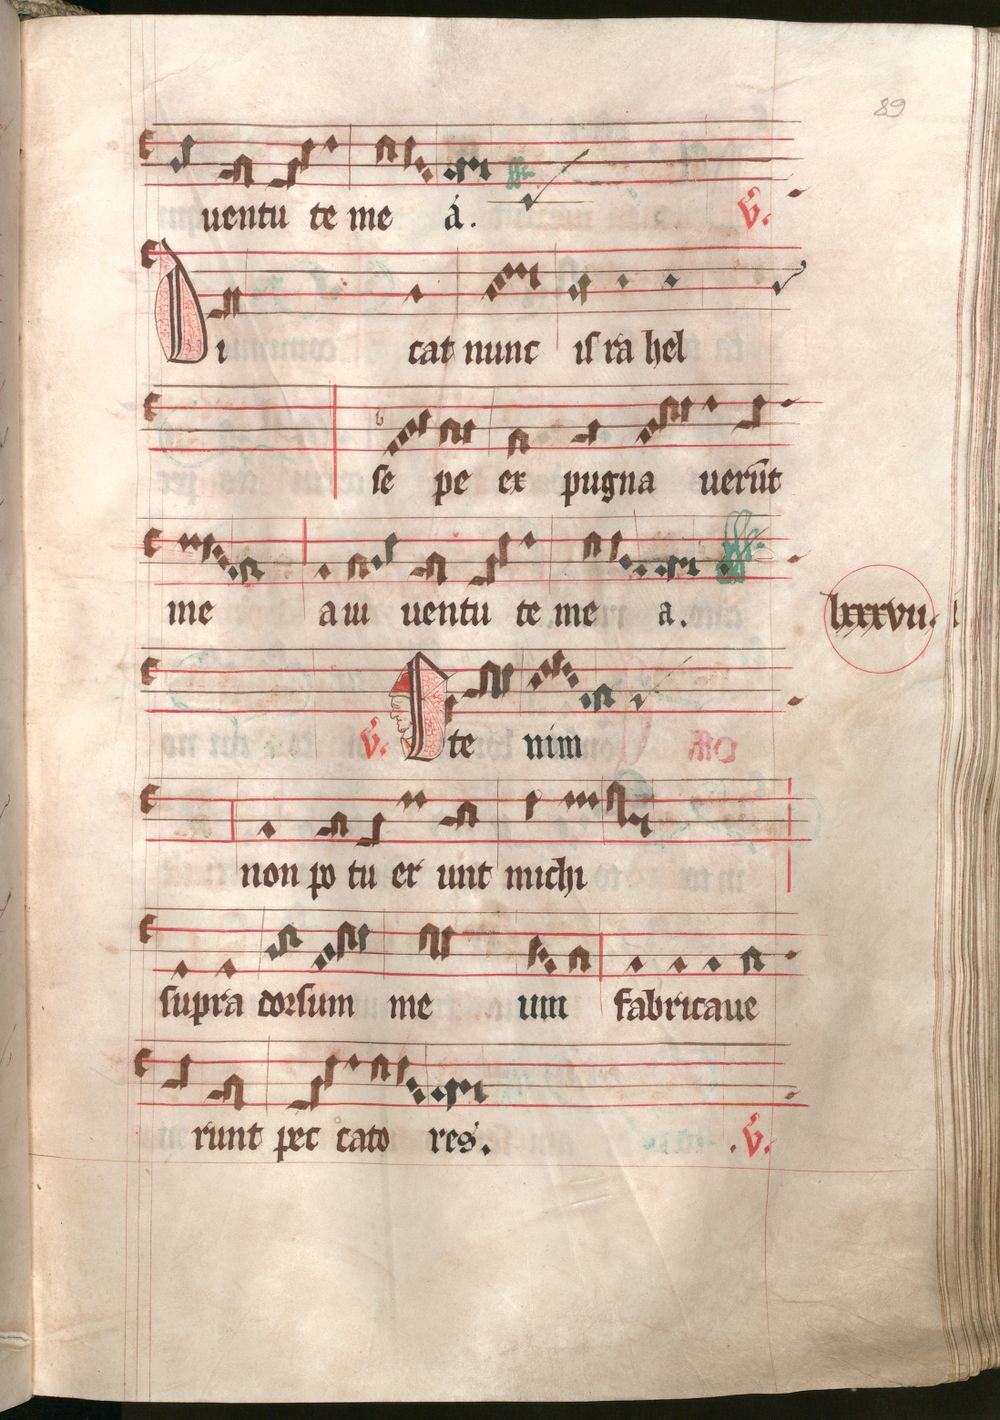 89
uentu te me a. V.
Di cat nunc is ra hel
se pe ex pugna uerūt
me a iu uentu te me a.
lxxxvii.
V. Ete nim
non po tu er unt michi
supra dorsum me um fabricaue
runt pec cato res. .V.